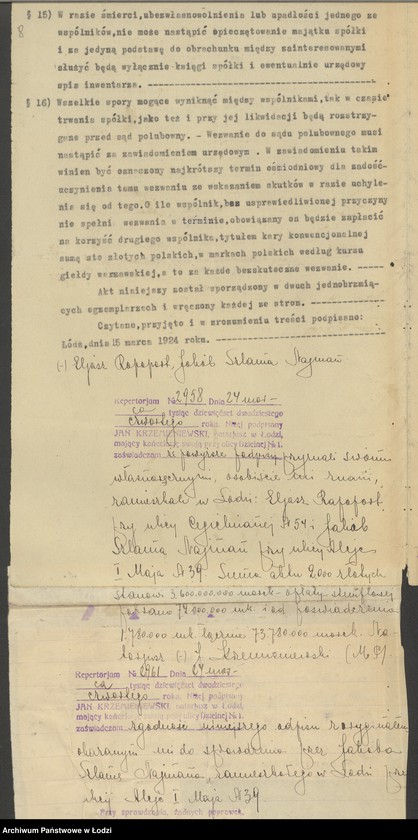 8
§ 15) W razie śmierci, ubezwłasnowolnienia lub upadłości jednego ze
wspólników, nie może nastąpić opieczętowanie majątku spółki
i za jedyną podstawę do obrachunku między zainteresowanymi
służyć będą wyłącznie księgi spółki i ewentualnie urzędowy
spis inwentarza.
§ 16) Wszelkie spory mogące wyniknąć między wspólnikami, tak w czasie
trwania spółki, jako też i przy jej likwidacji będą rozstrzy-
gane przed sąd polubowny. - Wezwanie do sądu polubownego musi
nastąpić za zawiadomieniem urzędowym. W zawiadomieniu takim
winien być oznaczony najkrótszy termin ośmiodniowy dla zadość-
uczynienia temu wezwaniu ze wskazaniem skutków w razie uchyle-
nia się od tego. O ile wspólnik, bez usprawiedliwionej przyczyny
nie spełni wezwania w terminie, obowiązany on będzie zapłacić
na korzyść drugiego wspólnika, tytułem kary konwencjonalnej
sumę sto złotych polskich, w markach polskich według kursu
giełdy warszawskiej, a to za każde bezskuteczne wezwanie.
Akt niniejszy został sporządzony w dwuch jednobrzmią-
cych egzemplarzach i wręczony każdej ze stron.
Czytano, przyjęto i w zrozumieniu treści podpisano:
Łódź, dnia 15 marca 1924 roku.
(-) Eljasz Rapoport, Jakób Szlama Najman
Repertorjum № 2958 Dnia 24 mar-
ca tysiąc dziewięćset dwudziestego
czwartego roku. Niżej podpisany
JAN KRZEMIENIEWSKI, Notarjusz w Łodzi,
mający kancelarję swoją przy ulicy Dzielnej № 1,
zaświadczam że powyższe podpisy przyznali swoimi
własnoręcznymi, osobiście mi znani,
zamieszkali w Łodzi: Eljasz Rapoport
przy ulicy Cegielnianej № 54 i Jakób
Szlama Najman przy ulicy Aleja
I Maja № 39. Suma aktu 2.000 złotych
stanowi 3.600.000.000 marek - opłaty stemplowej
pobrano 72.000.000 mk. i od poświadczenia
1.780.000 mk. łącznie 73.780.000 marek. No-
tarjusz (-) J. Krzemieniewski (M.P.)
Repertorjum № 2961 Dnia 24 mar-
ca tysiąc dziewięćset dwudziestego
czwartego roku. Niżej podpisany
JAN KRZEMIENIEWSKI, Notarjusz w Łodzi,
mający kancelarję swoją przy ulicy Dzielnej № 1,
zaświadczam zgodność niniejszego odpisu z oryginałem
okazanym mi do sprawdzenia przez Jakóba
Szlamę Najmana, zamieszkałego w Łodzi przy
ulicy Aleja I Maja № 39
Przy sprawdzeniu, żadnych poprawek,
Archiwum Państwowe w Łodzi